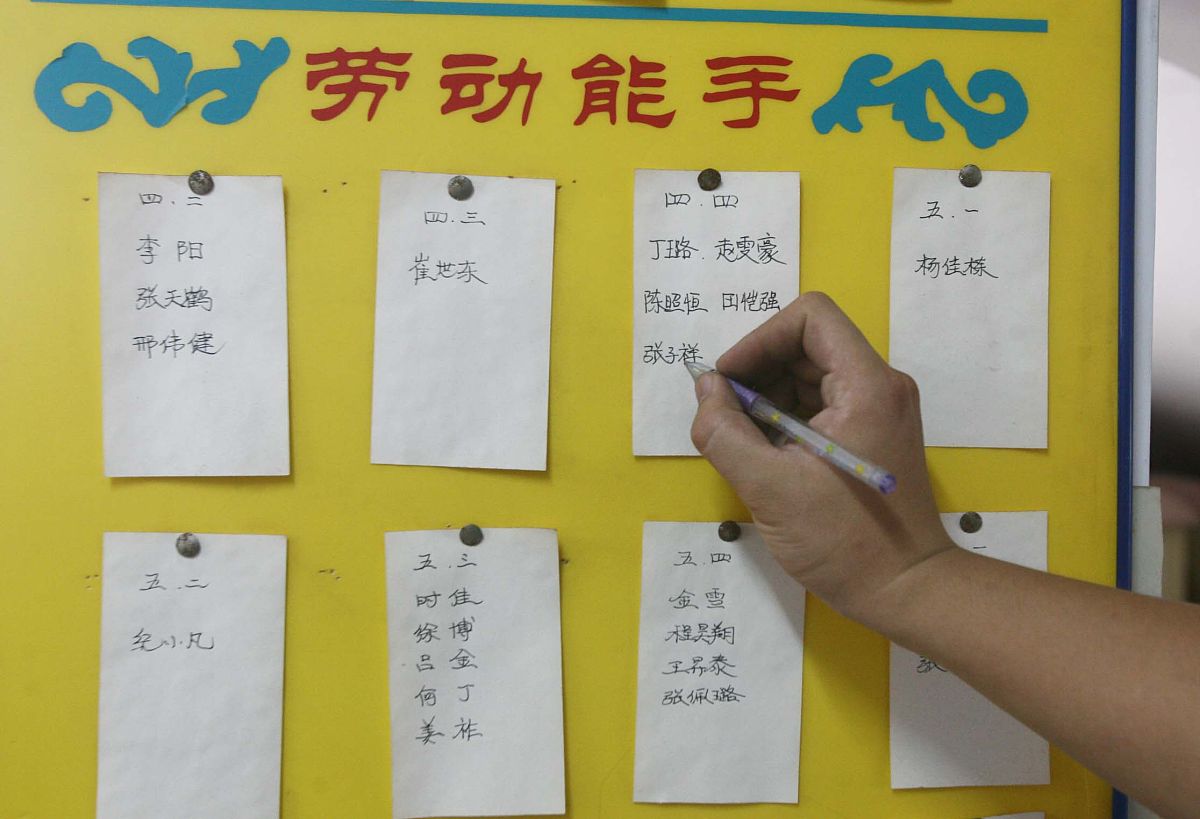 劳动能手
四.二
李阳
张天鹤
邢伟健
四.三
崔世东
四.四
丁珏璐.赵雯豪
陈照恒 田恺强
张子祥
五.一
杨佳栋
五.二
纪小凡
五.三
时佳
徐博
吕金
何丁
姜祚
五.四
金雪
程昊翔
王昇泰
张佩璐
一
张